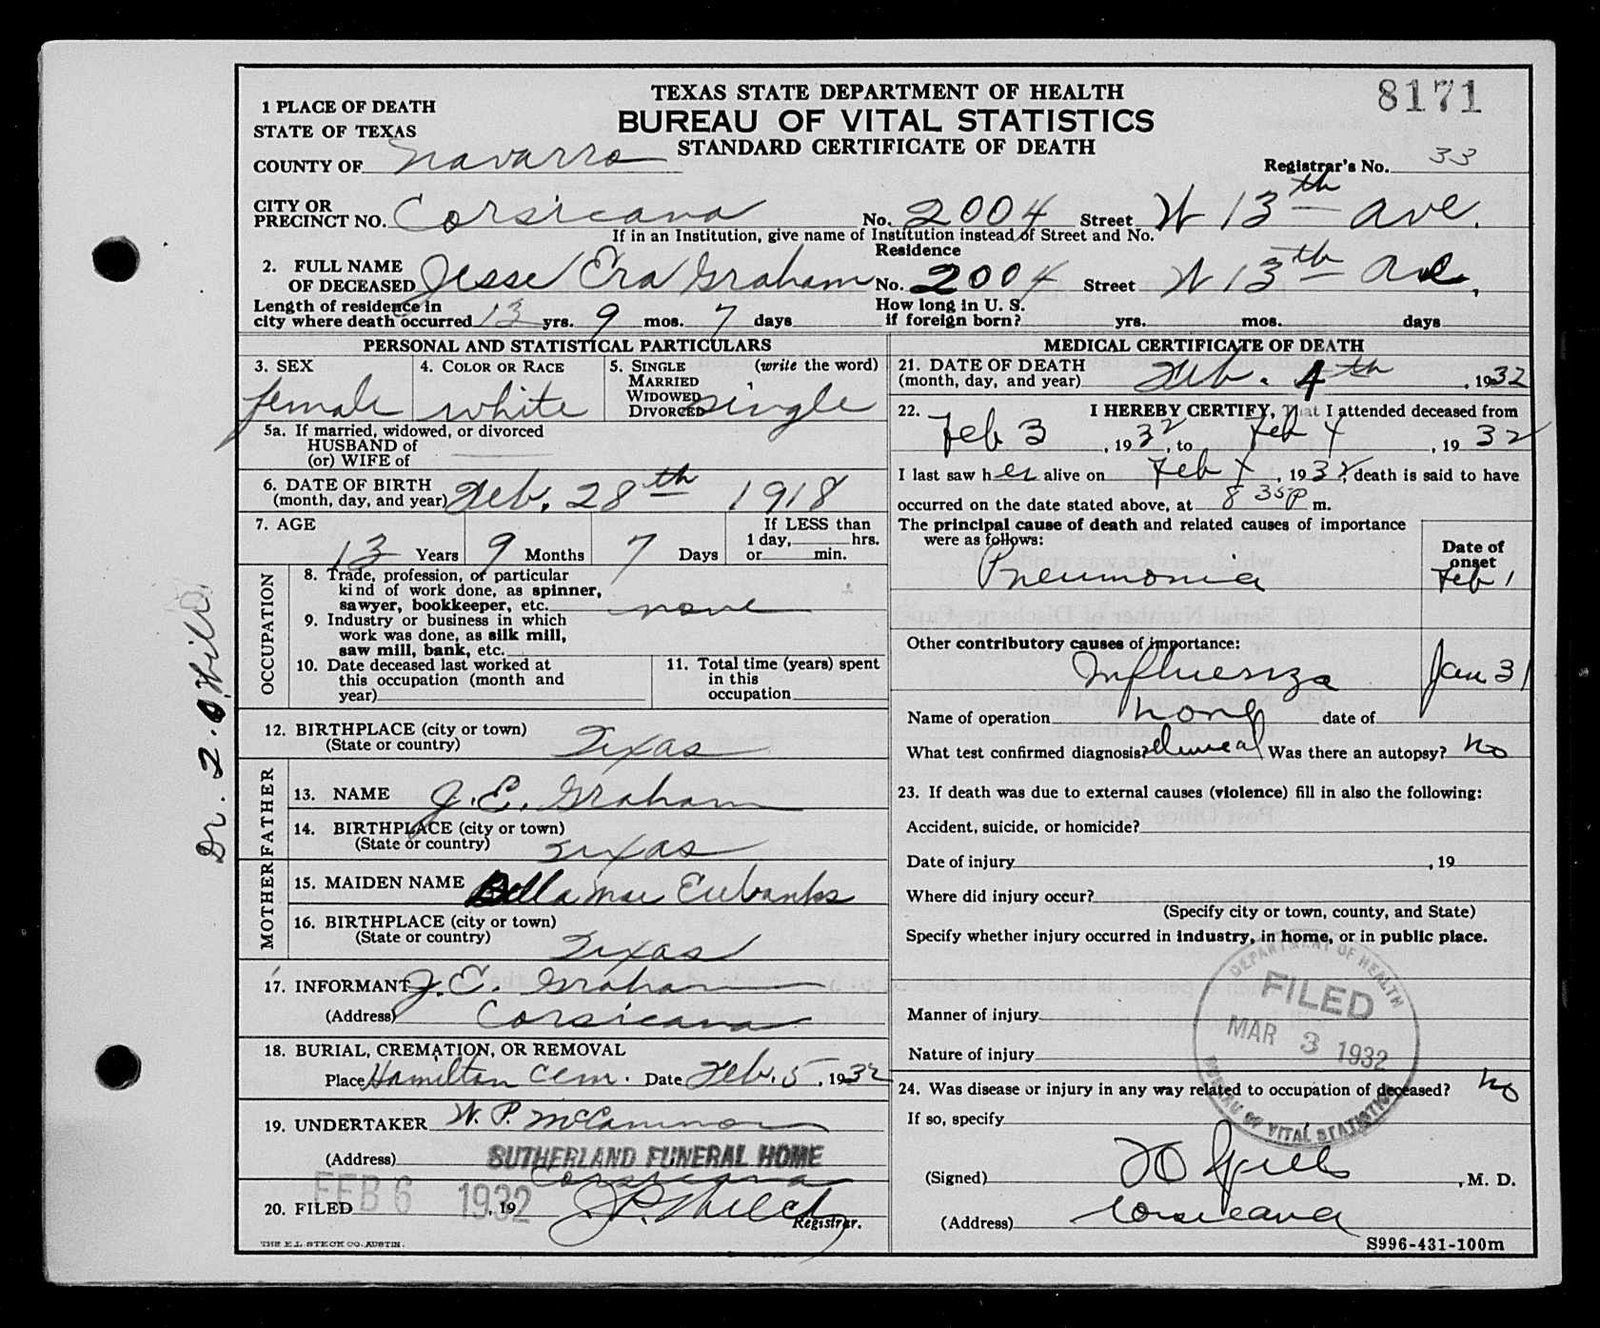 8171
TEXAS STATE DEPARTMENT OF HEALTH
BUREAU OF VITAL STATISTICS
STANDARD CERTIFICATE OF DEATH
1 PLACE OF DEATH
STATE OF TEXAS
COUNTY OF Navarro
Registrar's No. 33
CITY OR
PRECINCT NO. Corsicana No. 2004 Street W 13th Ave.
If in an Institution, give name of Institution instead of Street and No.
Residence
2. FULL NAME
OF DECEASED Jesse Era Graham No. 2004 Street W 13th Ave,
Length of residence in
city where death occurred 13 yrs. 9 mos. 7 days
How long in U. S.
if foreign born? yrs. mos. days
PERSONAL AND STATISTICAL PARTICULARS
3. SEX
female
4. COLOR OR RACE
white
5. SINGLE (write the word)
MARRIED
WIDOWED
DIVORCED single
5a. If married, widowed, or divorced
HUSBAND of
(or) WIFE of
6. DATE OF BIRTH
(month, day, and year) Feb. 28th 1918
7. AGE
13 Years 9 Months 7 Days
If LESS than
1 day, hrs.
or min.
OCCUPATION
8. Trade, profession, or particular
kind of work done, as spinner,
sawyer, bookkeeper, etc. none
9. Industry or business in which
work was done, as silk mill,
saw mill, bank, etc.
10. Date deceased last worked at
this occupation (month and
year)
11. Total time (years) spent
in this
occupation
12. BIRTHPLACE (city or town)
(State or country) Texas
FATHER
13. NAME J. E. Graham
14. BIRTHPLACE (city or town)
(State or country) Texas
MOTHER
15. MAIDEN NAME Della Mae Eubanks
16. BIRTHPLACE (city or town)
(State or country) Texas
17. INFORMANT J. E. Graham
(Address) Corsicana
18. BURIAL, CREMATION, OR REMOVAL
Place Hamilton Cem. Date Feb. 5, 1932
19. UNDERTAKER W. P. McCammon
(Address) SUTHERLAND FUNERAL HOME
Corsicana
20. FILED FEB 6 1932, 19
Registrar.
THE E.L. STECK CO. AUSTIN.
MEDICAL CERTIFICATE OF DEATH
21. DATE OF DEATH
(month, day, and year) Feb. 4th, 1932
22. I HEREBY CERTIFY, That I attended deceased from
Feb 3, 1932, to Feb 4, 1932
I last saw her alive on Feb 4, 1932, death is said to have
occurred on the date stated above, at 8 35P m.
The principal cause of death and related causes of importance
were as follows:
Date of
onset
Pneumonia Feb 1
Other contributory causes of importance:
Influenza Jan 31
Name of operation none date of
What test confirmed diagnosis? clinical Was there an autopsy? No
23. If death was due to external causes (violence) fill in also the following:
Accident, suicide, or homicide?
Date of injury, 19
Where did injury occur?
(Specify city or town, county, and State)
Specify whether injury occurred in industry, in home, or in public place.
Manner of injury
Nature of injury
DEPARTMENT OF HEALTH
FILED
MAR 3 1932
BUREAU OF VITAL STATISTICS
24. Was disease or injury in any way related to occupation of deceased? No
If so, specify
(Signed), M. D.
(Address) Corsicana
S996-431-100m